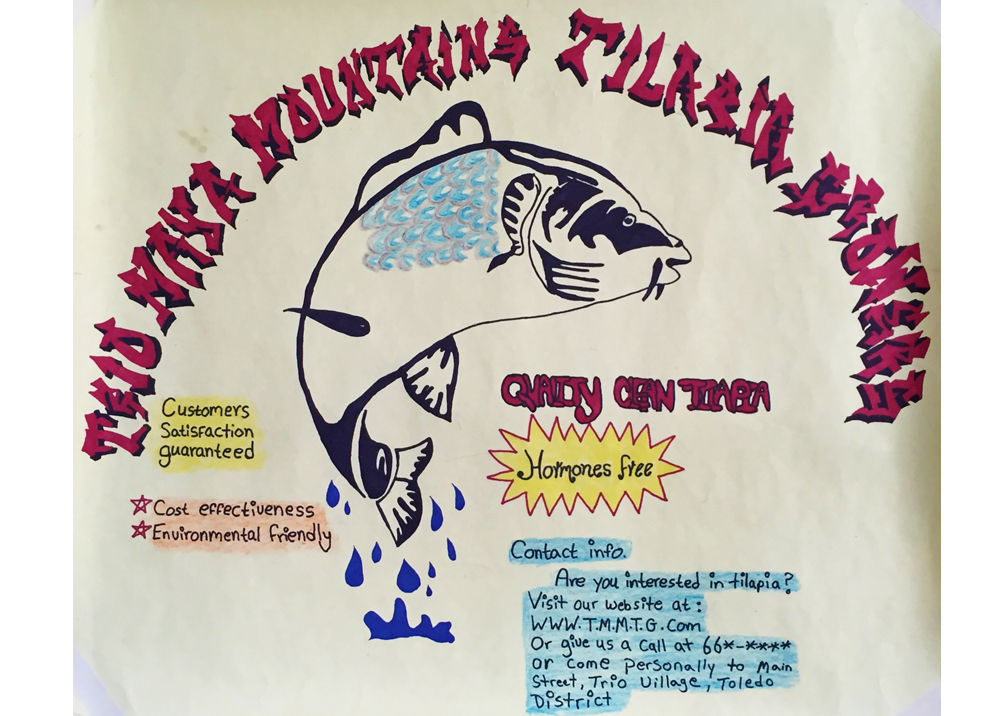 TRIO MAYA MOUNTAINS TILAPIA GROWERS
Customers
Satisfaction
guaranteed
Cost effectiveness
Environmental friendly
QUALITY CLEAN TILAPIA
Hormones free
Contact info.
Are you interested in tilapia?
Visit our website at:
WWW.T.M.M.T.G.Com
Or give us a call at 66*-****
or come personally to Main
Street, Trio Village, Toledo
District